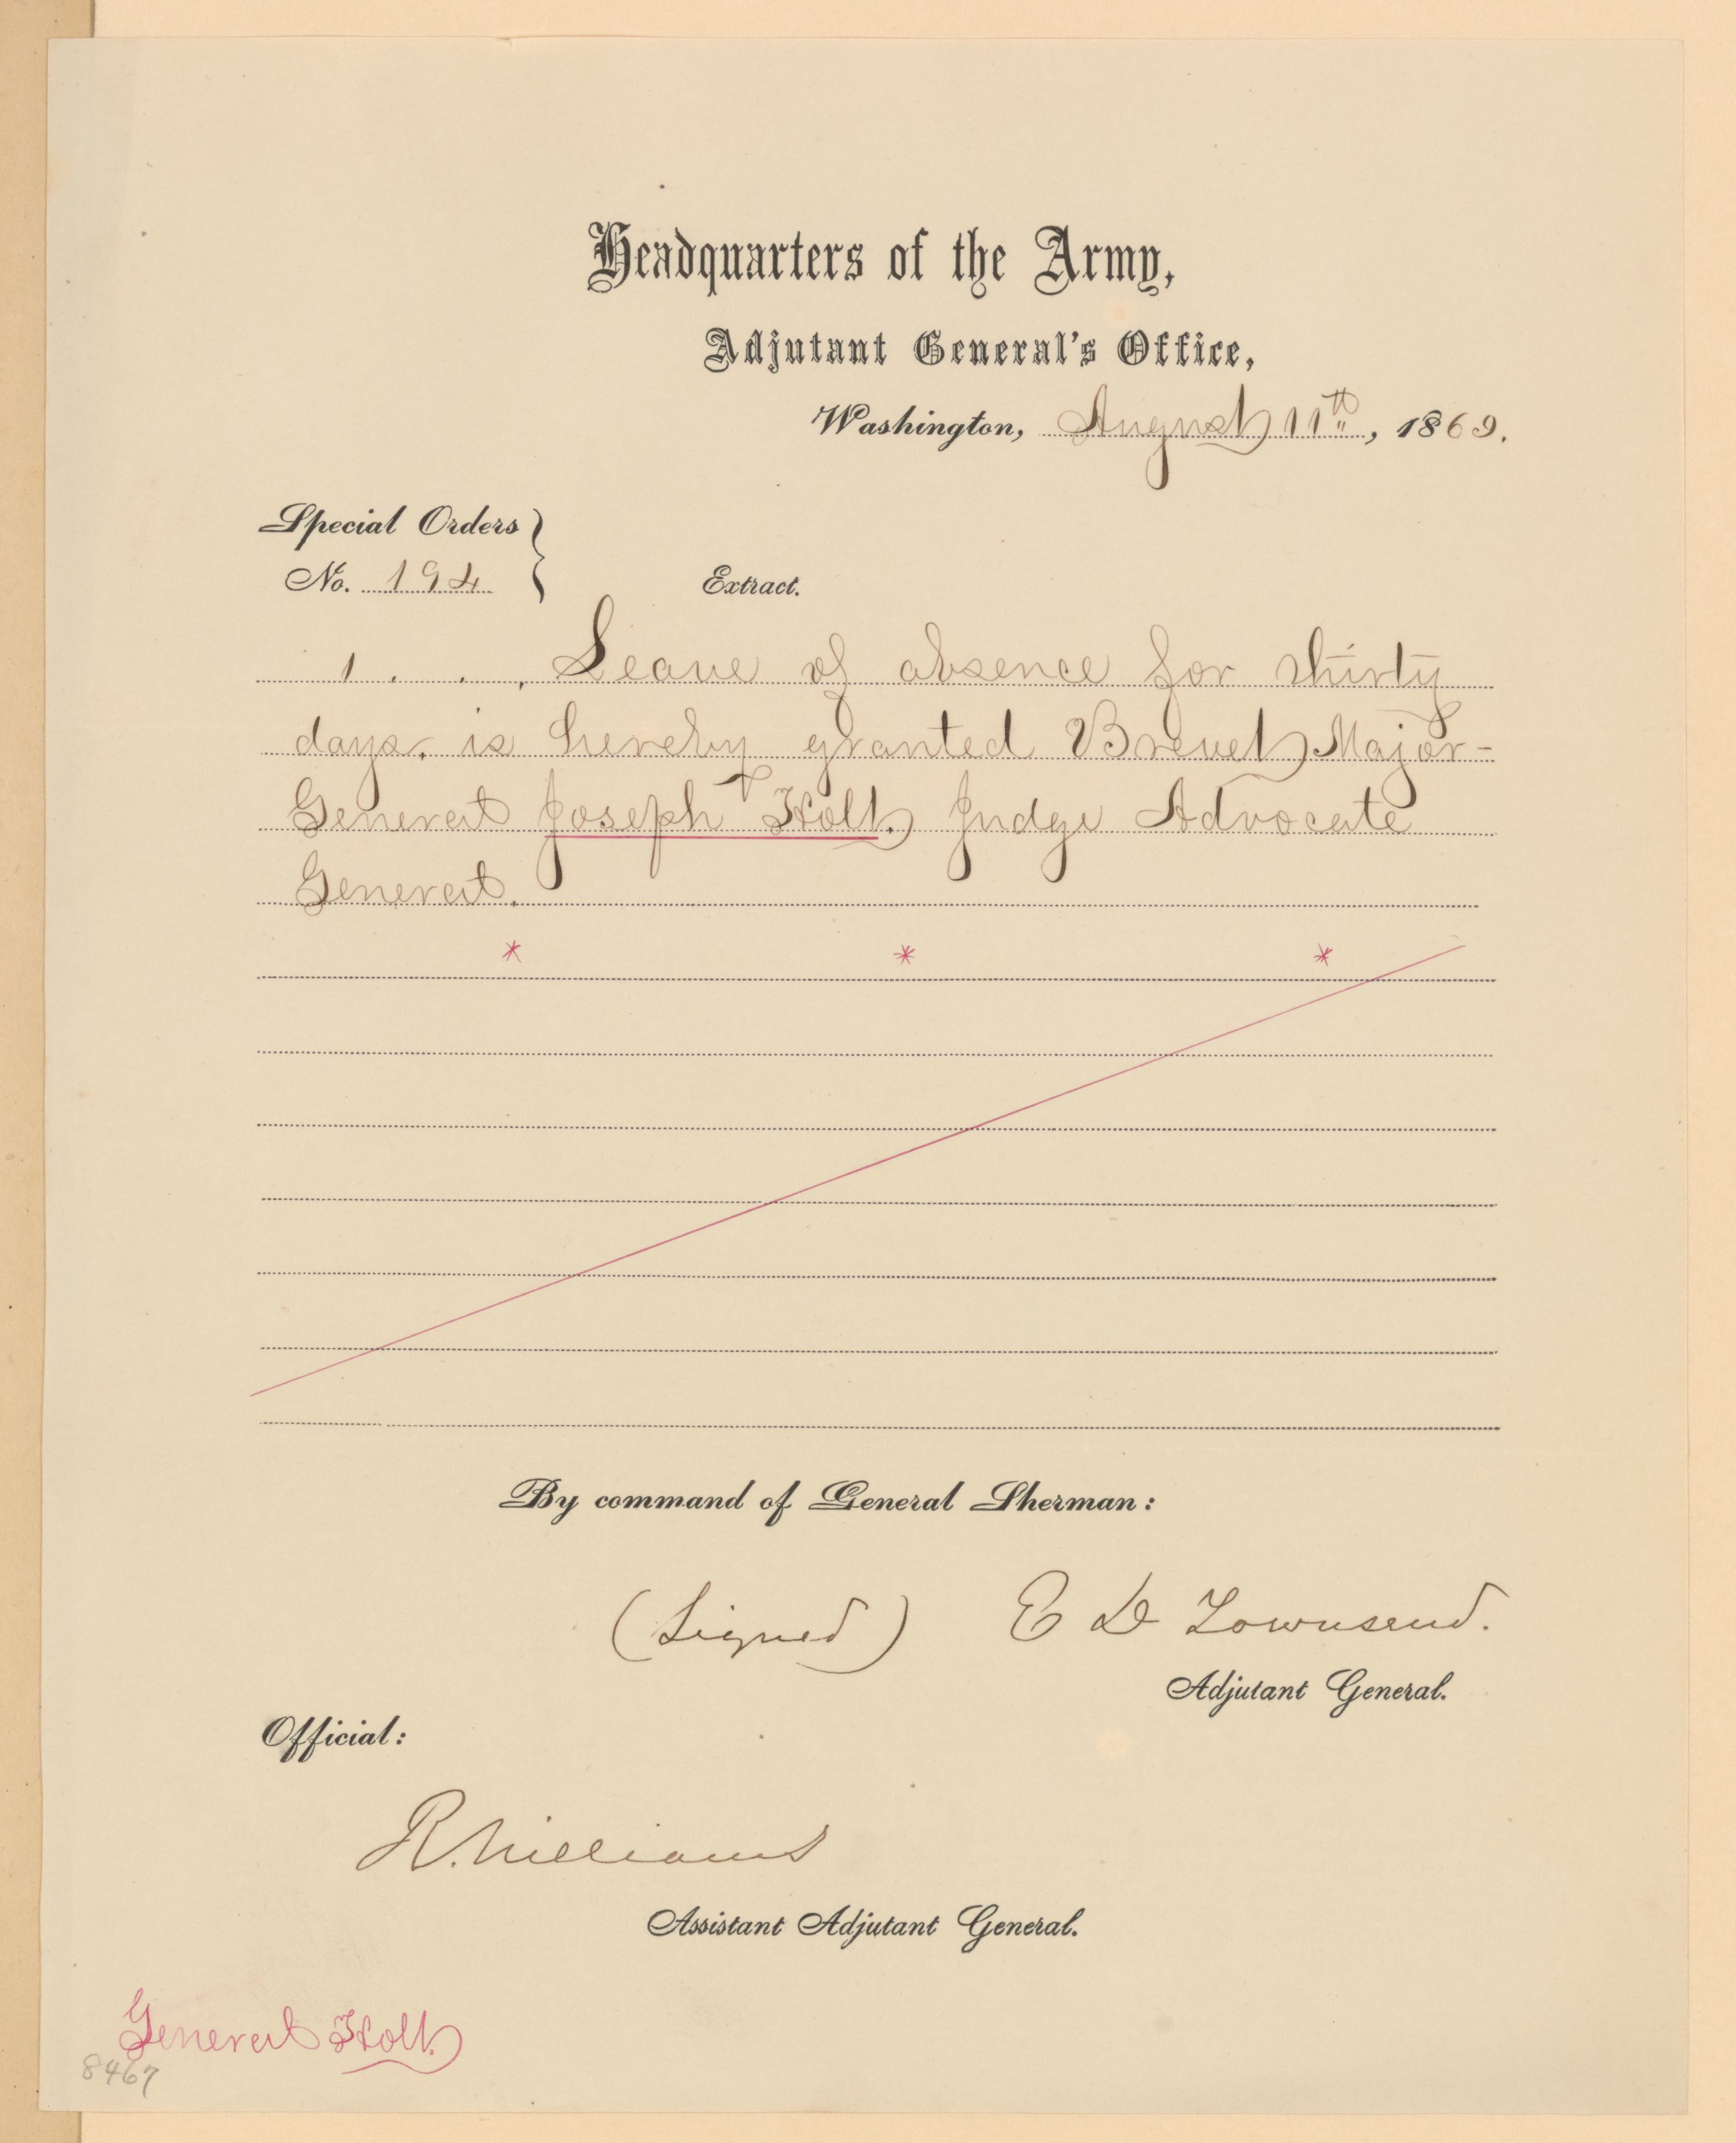 Headquarters of the Army,
Adjutant General's Office,
Washington, August 11th, 1869.
Special Orders
No. 194
Extract.
1. . . Leave of absence for thirty
days, is hereby granted Brevet Major-
General Joseph Holt. Judge Advocate
General.
* * *
By command of General Sherman:
(Signed) E D Townsend.
Adjutant General.
Official:
R. Williams
Assistant Adjutant General.
General Holt.
8467